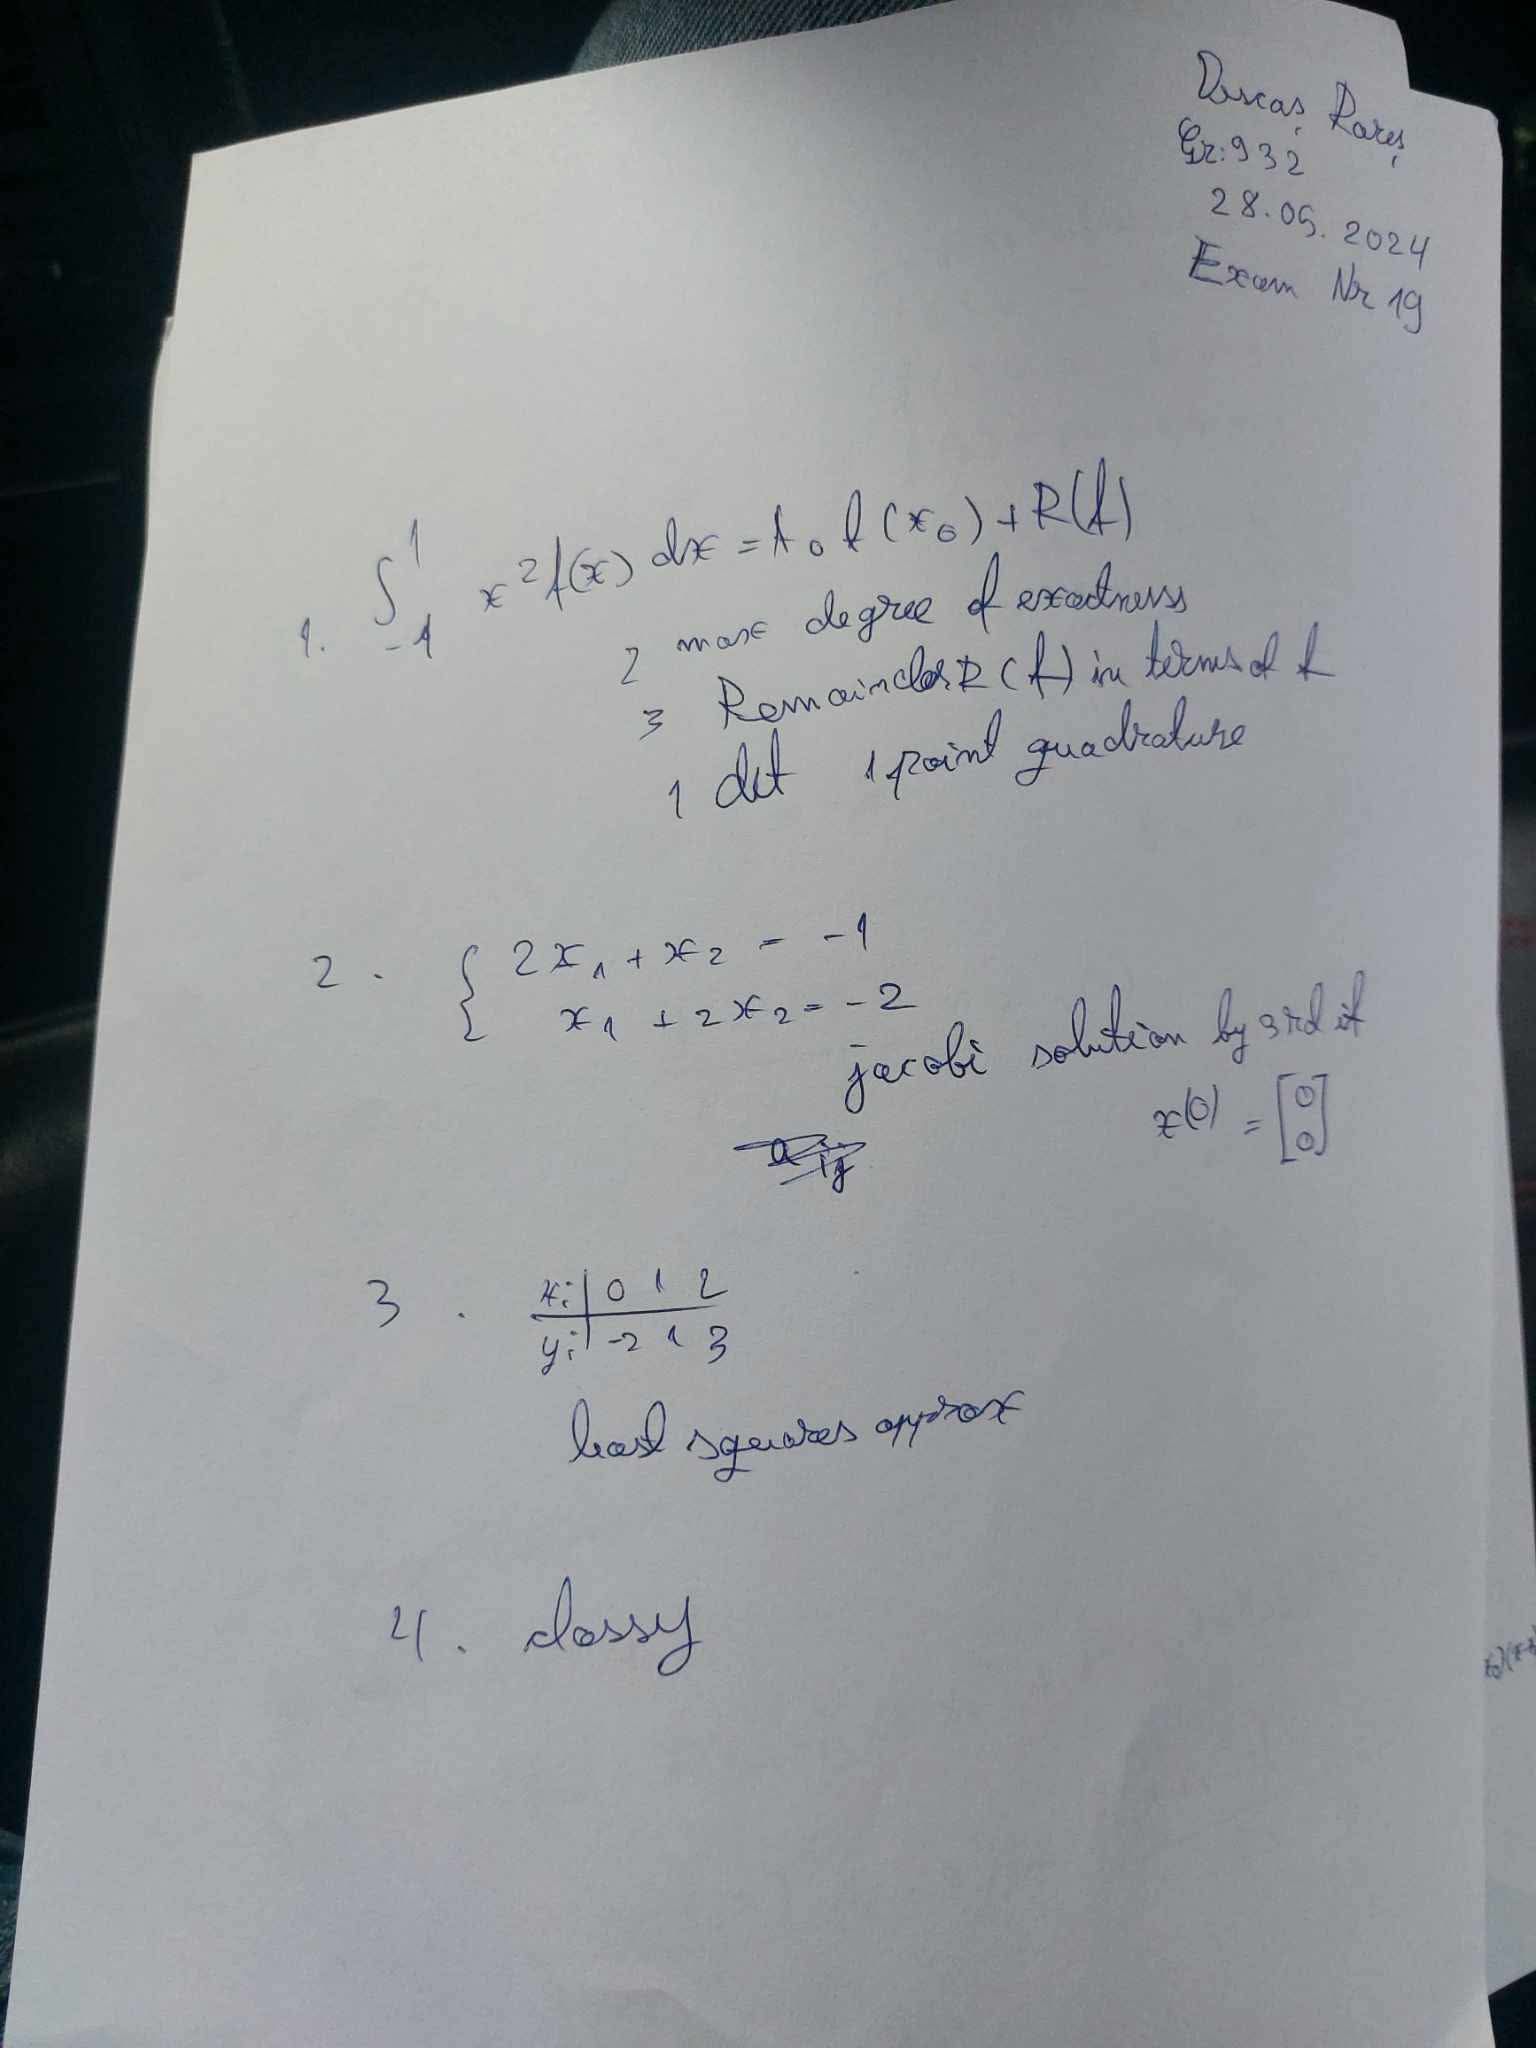 Duscaș Rareș
Gr:932
28.05.2024
Exam Nr 19
1. ∫₋₁¹ x² f(x) dx = A₀ f(x₀) + R(f)
2 max degree of exactness
3 Remainder R(f) in terms of f
1 det 1 point quadrature
2. { 2x₁ + x₂ = -1
x₁ + 2x₂ = -2
jacobi solution by 3rd it
x(0) = [0
0]
3. xi | 0 1 2
yi | -2 1 3
least squares approx
4.